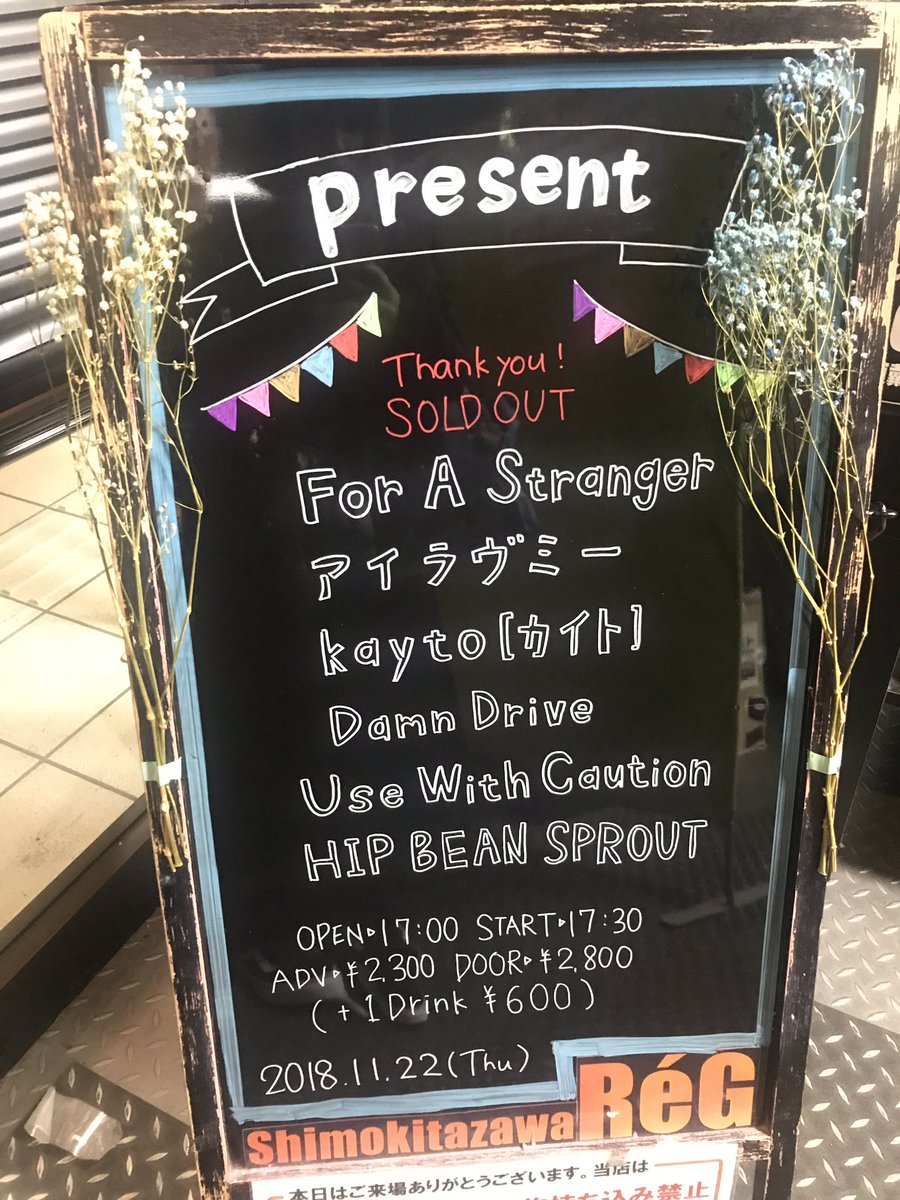 present
Thank you!
SOLD OUT
For A Stranger
アイラヴミー
kayto [カイト]
Damn Drive
Use With Caution
HIP BEAN SPROUT
OPEN▹17:00 START▹17:30
ADV▹¥2,300 DOOR▹¥2,800
(+1Drink ¥600)
2018.11.22(Thu)
Shimokitazawa RéG
本日はご来場ありがとうございます。当店は
持ち込み禁止